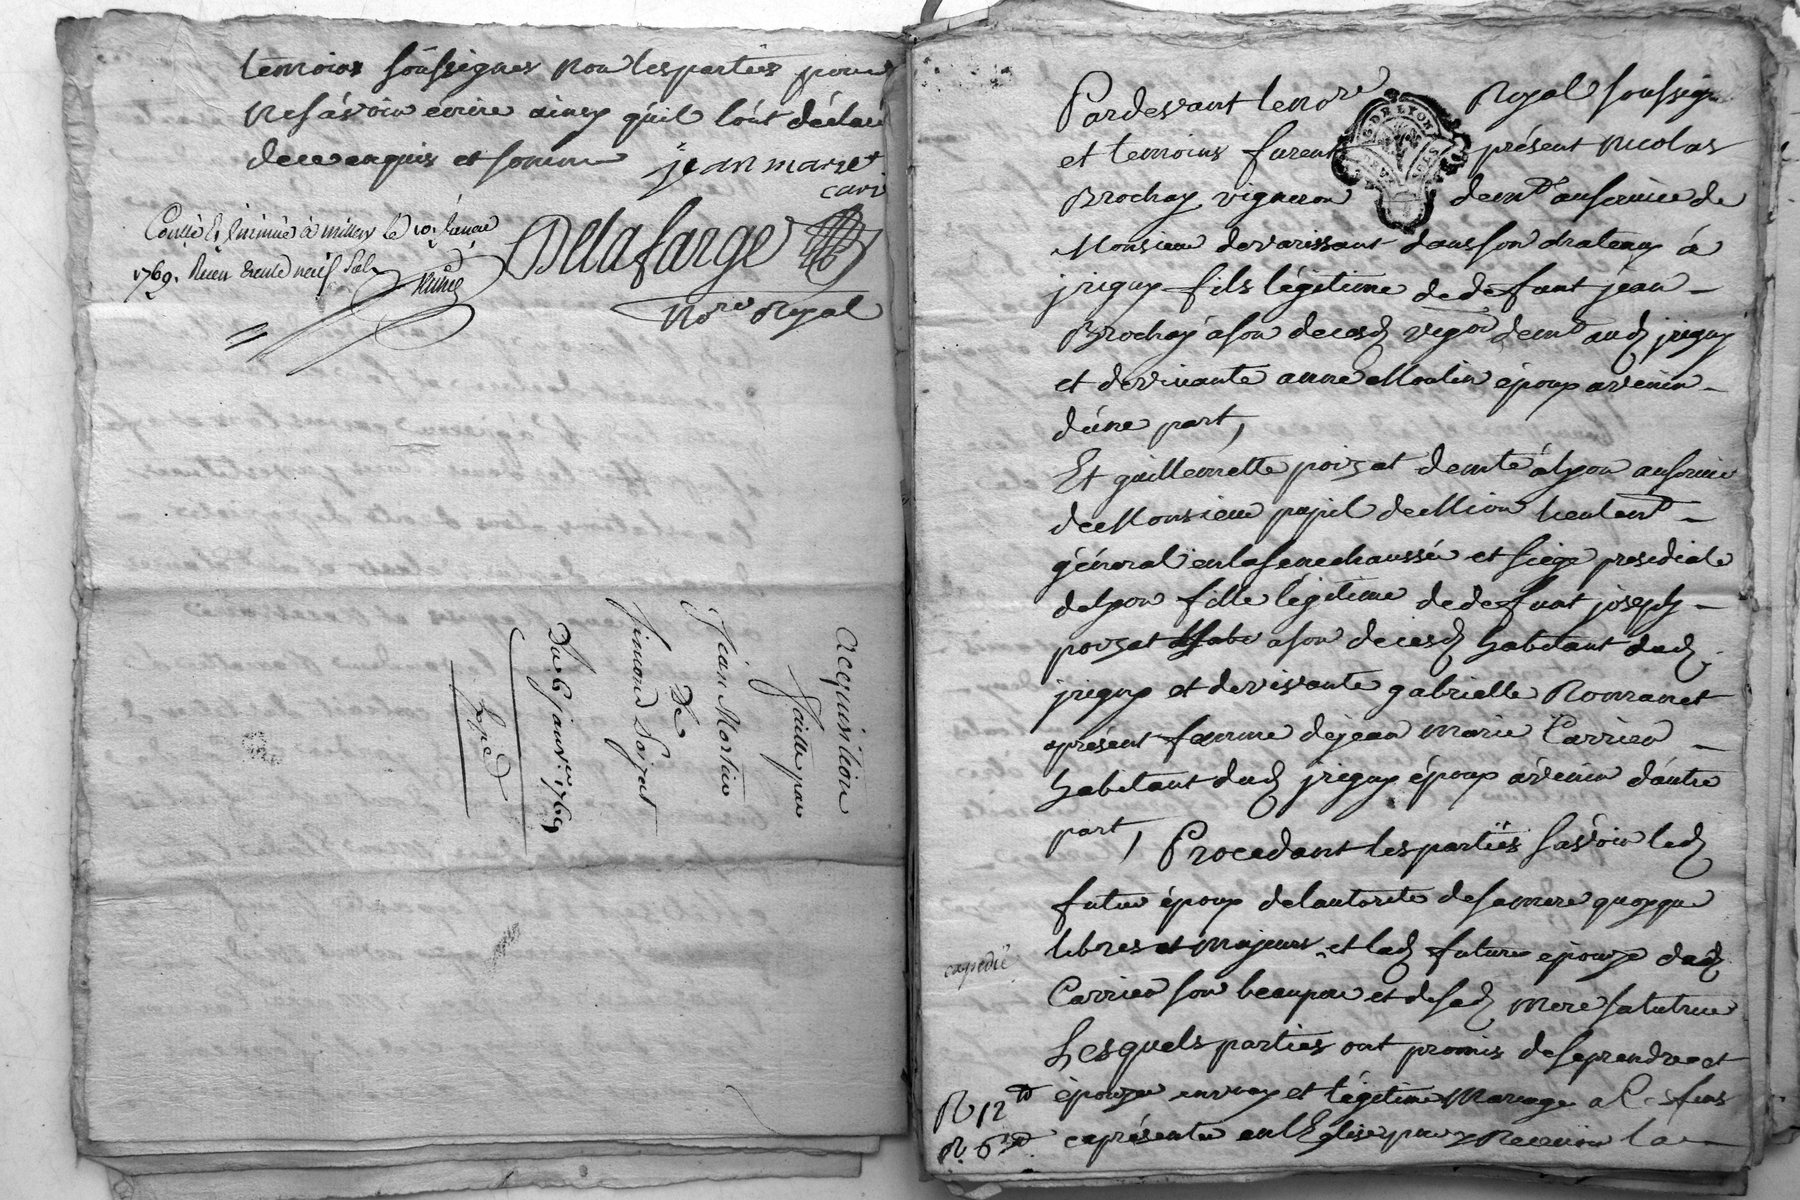 temoins soûssignes non les parties pour
ne sávoir écrire ainsy qúil lónt déclaré
de ce enquis et sommé jean marie
cari
Controllé & insinué à millery le 10e janvier
1769. Reçu trente neuf sols
Delafarge
Nore Royal
Acquisition
faitte par
Jean Mortier
De
Simond Loizat
Du 6 janvr. 1769
Expd
Pardevant le nore Royal soussigné
G. DE LYON
et temoins furent présent nicolas
Brochay vigneron demt au service de
Monsieur devarissant dans son chateau à
jrigny fils légitime de defunt jéan
Brochay à son decesd vigon demt aud jrigny
et de vivante anne Moulin époux avenir
d'úne part,
Et guillemette poizat demte à lyon au service
de Monsieur papil de Mion lieutent
général en la senechaussée et siége presidial
de lyon fille légitime de defunt joseph
poizat a son decesd habitant dud
jrigny et de vivante gabrielle Romanet
apresent femme de jean Marie Carrier
habitant dud jrigny époux avenir d'autre
part, Procedant les partiës sávoir led
futur époux de l'autorite de sa mere quoyque
libres et majeurs et lad future epouze dud
expedié
Carrier son beaupere et de sad mere sa tutrice
Lesquels parties ont promis de se prendre et
épouzer en vray et légitime Mariage a l'es fins
R 12 d
R. 6 d.
ce présenter en l'Eglise pour y Recevoir la